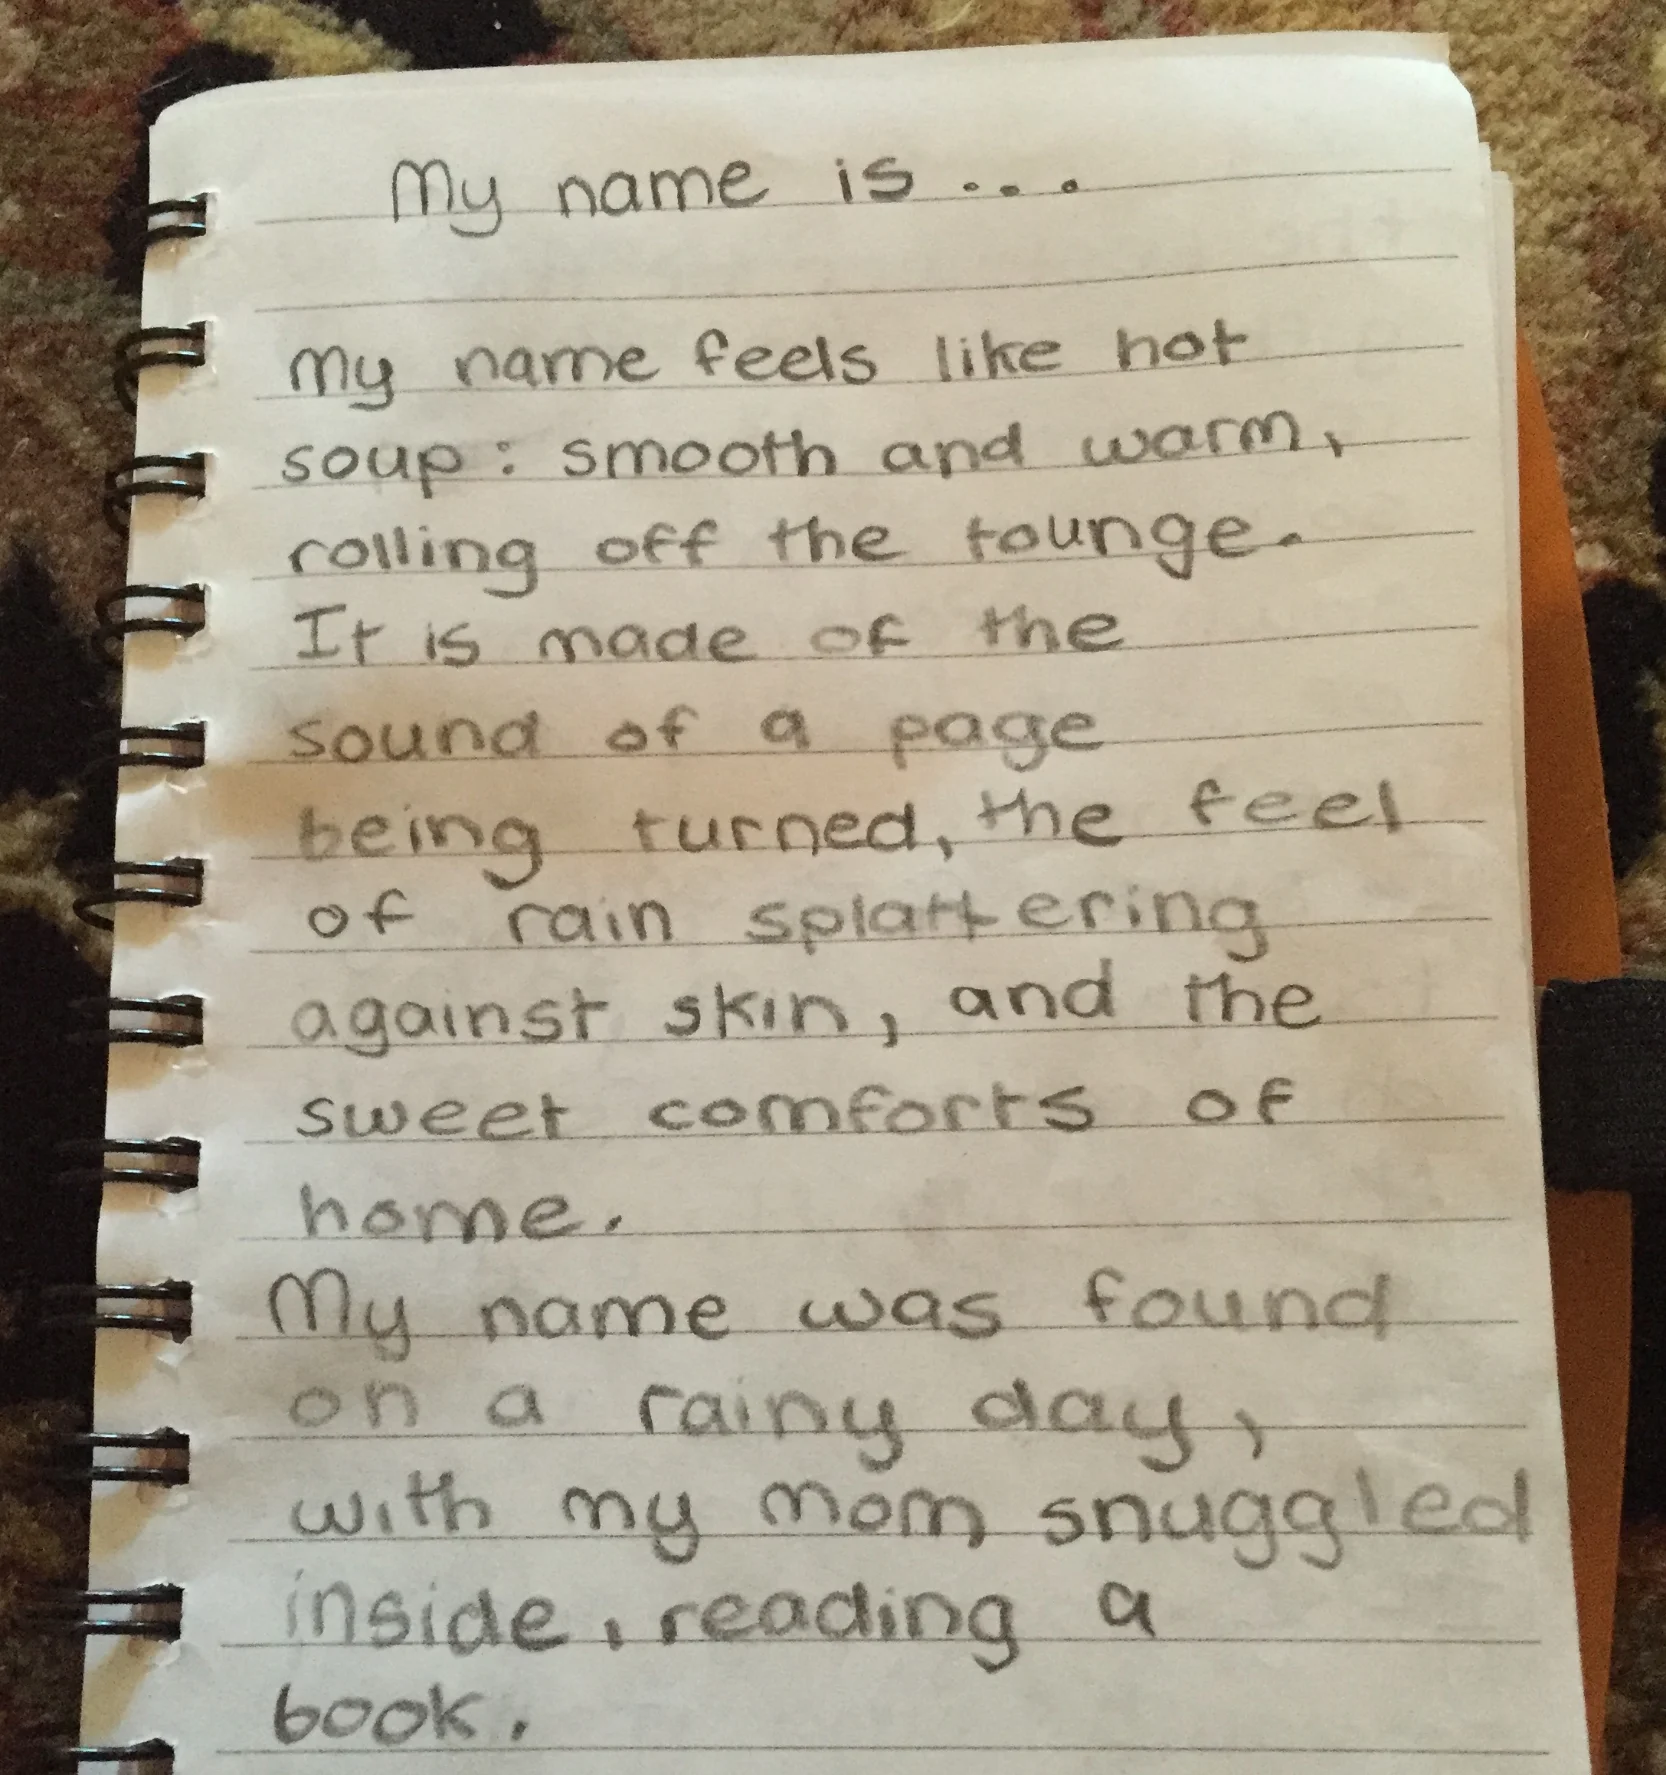 My name is...
My name feels like hot
soup: smooth and warm,
rolling off the tounge.
It is made of the
sound of a page
being turned, the feel
of rain splattering
against skin, and the
sweet comforts of
home.
My name was found
on a rainy day,
with my mom snuggled
inside, reading a
book.